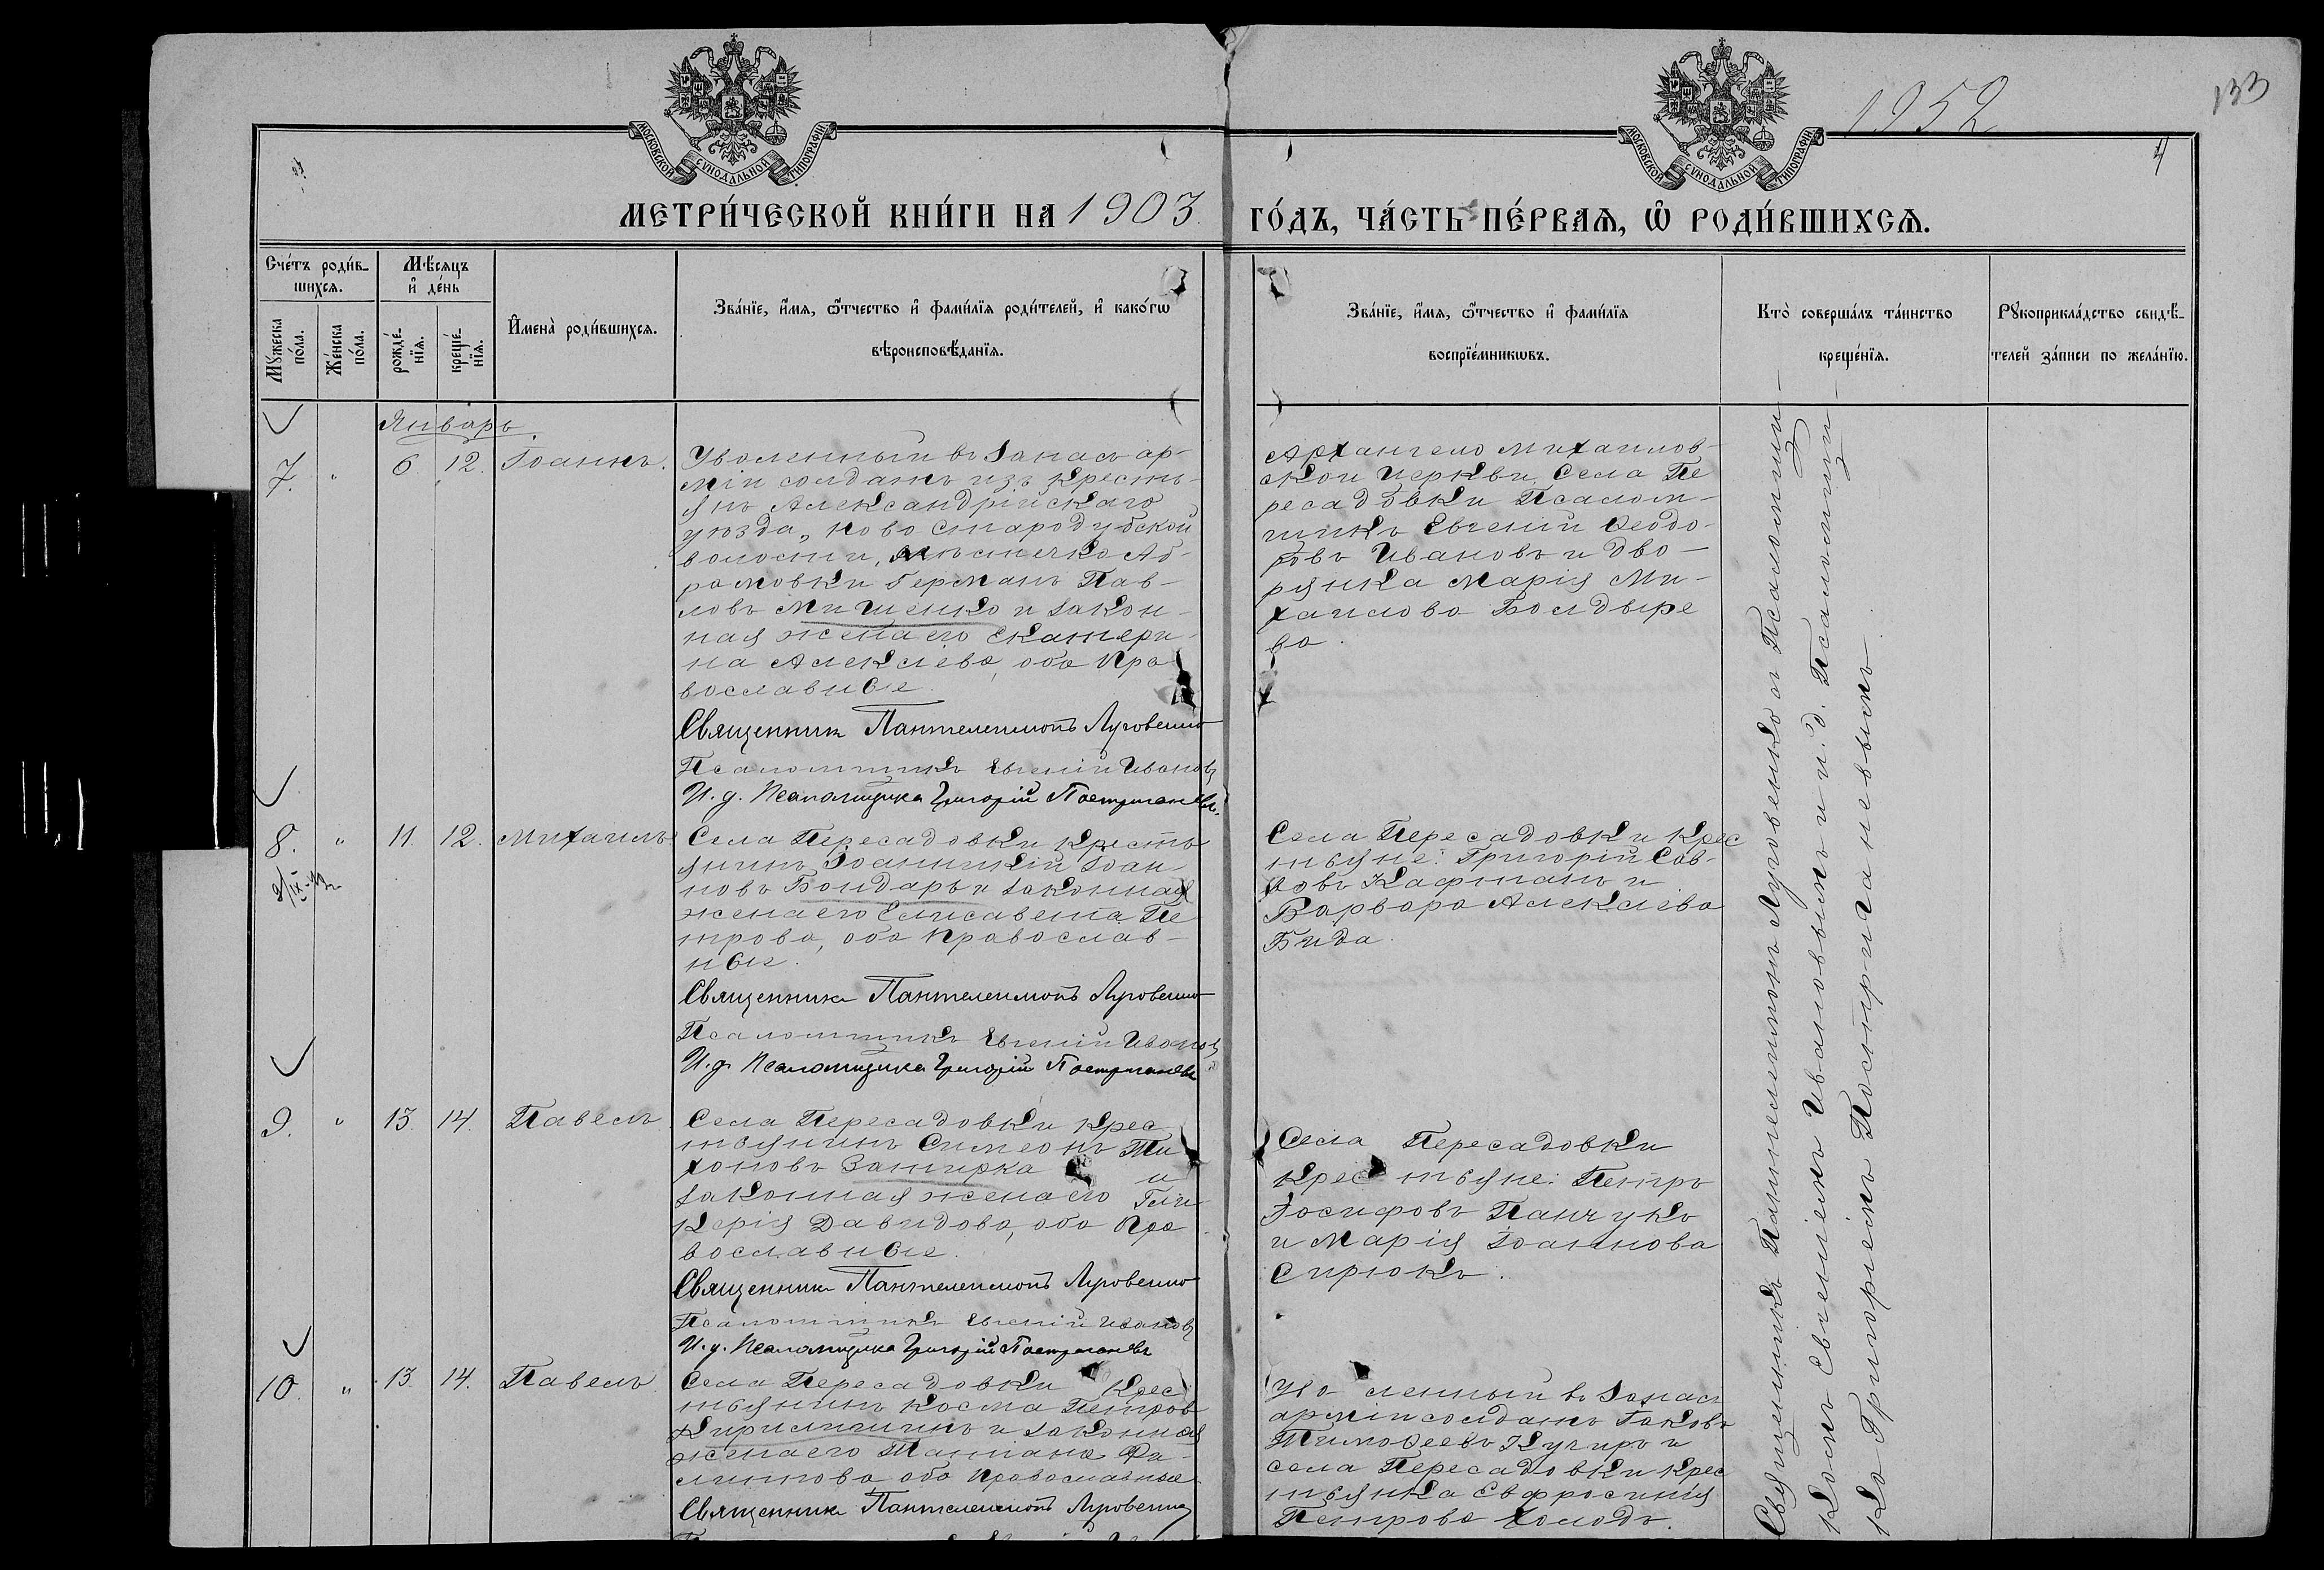 1952
133
4
МОСКОВСКОЙ СѴНОДАЛЬНОЙ ТИПОГРАФІИ
МОСКОВСКОЙ СѴНОДАЛЬНОЙ ТИПОГРАФІИ
МЕТРИ́ЧЕСКОЙ КНИ́ГИ НА 1903. ГО́ДЪ, ЧА́СТЬ ПЕ́РВАѦ, Ѡ҆ РОДИ́ВШИХСѦ.
Счéтъ роди́в-
шихся.
Мꙋ́жеска
по́ла.
Же́нска
по́ла.
Мѣ́сяцъ
и҆ де́нь
рожде́-
нїя.
креще́-
нїя.
И҆мена̀ роди́вшихся.
Зва́нїе, и҆́мя, ѻ҆́тчество и҆ фами́лїя роди́телей, и҆ како́гѡ
вѣроисповѣ́данїя.
Зва́нїе, и҆́мя, ѻ҆́тчество и҆ фами́лїя
воспрїе́мникѡвъ.
Кто̀ соверша́лъ та́инство
креще́нїя.
Рꙋкоприкла́дство свидѣ́-
телей за́писи по жела́нїю.
Январь.
7. " 6 12. Іоаннъ.
Уволенный въ запасъ ар-
міи солдатъ изъ кресть-
янъ Александрійскаго
уѣзда, Ново Стародубской
волости, мѣстечко Аб-
рамовки Германъ Пав-
ловъ Мишенко и закон-
ная жена его Екатери-
на Алексіева, оба пра-
вославные.
Священникъ Пантелеимонъ Луговенко
Псаломщикъ Евгеній Ивановъ
И. д. Псаломщика Григорій Постриганевъ
Архангело Михаилов-
ской Церкви, Села Пе
ресадовки Псалом-
щикъ Евгеній Ѳеодо-
ровъ Ивановъ и дво-
рянка Марія Ми-
хаилова Болдыре
ва.
8. " 11. 12. Михаилъ
Села Пересадовки кресть
янинъ Іоанникій Іоан-
новъ Бондарь и законная
жена его Елисавета Пе
трова, оба православ-
ные.
Священникъ Пантелеимонъ Луговенко
Псаломщикъ Евгеній Ивановъ
И. д. Псаломщика Григорій Постриганевъ
Села Пересадовки крес
тьяне: Григорій Сав-
вовъ Кафтанъ и
Варвара Алексіева
Бида.
9. " 13. 14. Павелъ
Села Пересадовки крес
тьянинъ Симеонъ Ти
хоновъ Зангирка и
законная жена его Гли
керія Давидова, оба пра
вославные.
Священникъ Пантелеимонъ Луговенко
Псаломщикъ Евгеній Ивановъ
И. д. Псаломщика Григорій Постриганевъ
Села Пересадовки
крестьяне: Петръ
Іосифовъ Панчукъ
и Марія Іоаннова
Сирюкъ.
10. " 13. 14. Павелъ
Села Пересадовки крес
тьянинъ Косма Петров
Кириличинъ и законная
жена его Татіана Фа-
лимова оба православные
Священникъ Пантелеимонъ Луговенко
Уволенный въ запасъ
арміи солдатъ Іаковъ
Тимоѳеевъ Кучиръ и
села Пересадовки крес
тьянка Евфросинія
Петрова Холодъ.
Священникъ Пантелеимонъ Луговенко и Псаломщи-
комъ Евгеніемъ Ивановымъ и и. д. Псаломщи-
ка Григоріемъ Постриганевымъ.